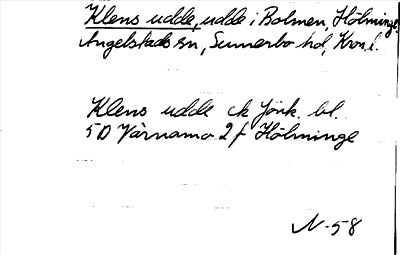 Klens udde, udde i Bolmen, Hölminge,
Angelstads sn, Sunnerbo hd, Kron. l.
Klens udde ek Jönk. bl.
5D Värnamo 2 f Hölminge
N-58